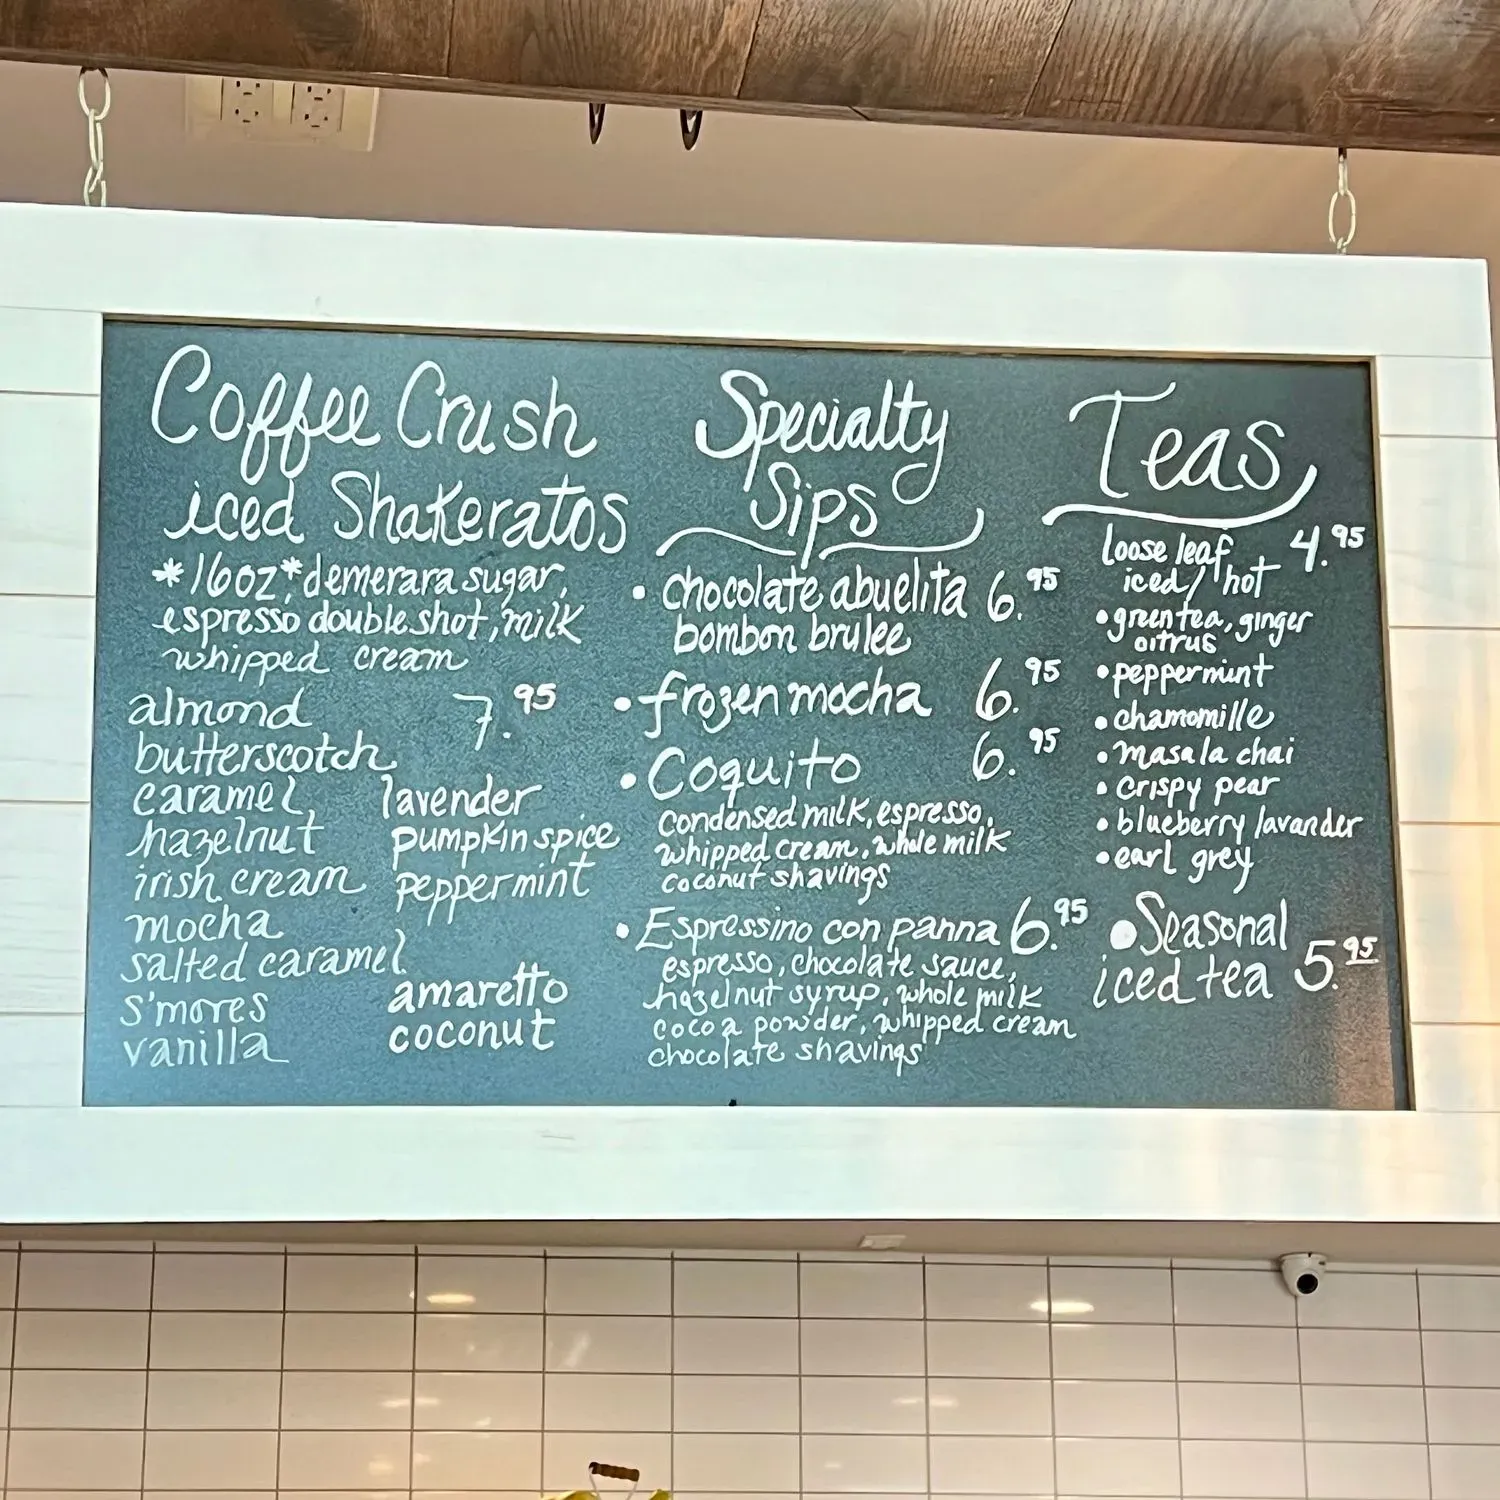 Coffee Crush
iced Shakeratos
*16oz* demerara sugar,
espresso double shot, milk
whipped cream
almond 7.95
butterscotch
caramel
hazelnut
irish cream
mocha
salted caramel
s'mores
vanilla
lavender
pumpkin spice
peppermint
amaretto
coconut
Specialty
Sips
• chocolate abuelita 6.95
bombon brulee
• frozen mocha 6.95
• Coquito 6.95
condensed milk, espresso,
whipped cream, whole milk
coconut shavings
• Espressino con panna 6.95
espresso, chocolate sauce,
hazelnut syrup, whole milk
cocoa powder, whipped cream
chocolate shavings
Teas
loose leaf 4.95
iced/hot
• green tea, ginger
citrus
• peppermint
• chamomille
• masala chai
• crispy pear
• blueberry lavander
• earl grey
• Seasonal
iced tea 5.95